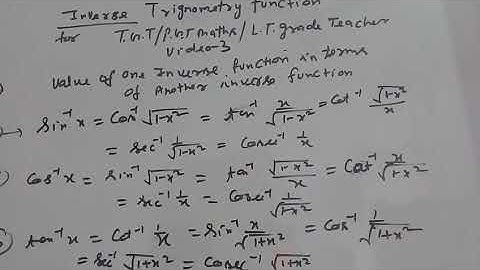 Inverse Trignometry function
for T.G.T/P.G.T maths/L.T. grade Teacher
Video-3
value of one Inverse function in terms
of Another inverse function
→ Sin⁻¹x = Cos⁻¹√(1-x²) = tan⁻¹ x/√(1-x²) = Cot⁻¹ √(1-x²)/x
= sec⁻¹ 1/√(1-x²) = Cosec⁻¹ 1/x
Cos⁻¹x = Sin⁻¹√(1-x²) = tan⁻¹ √(1-x²)/x = Cot⁻¹ x/√(1-x²)
= sec⁻¹ 1/x = Cosec⁻¹ 1/√(1-x²)
tan⁻¹x = Cot⁻¹ 1/x = Sin⁻¹ x/√(1+x²) = Cos⁻¹ 1/√(1+x²)
= Sec⁻¹ √(1+x²) = Cosec⁻¹ √(1+x²)